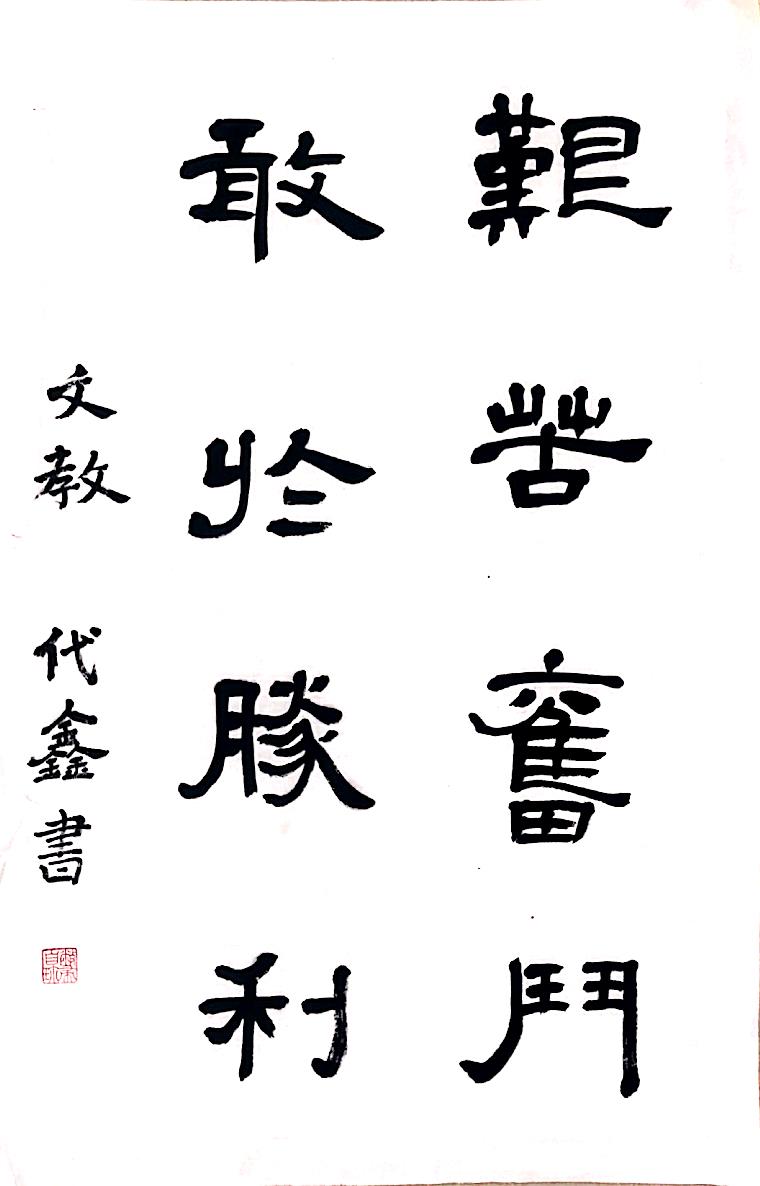 艱苦奮鬥
敢於勝利
文教 代鑫書